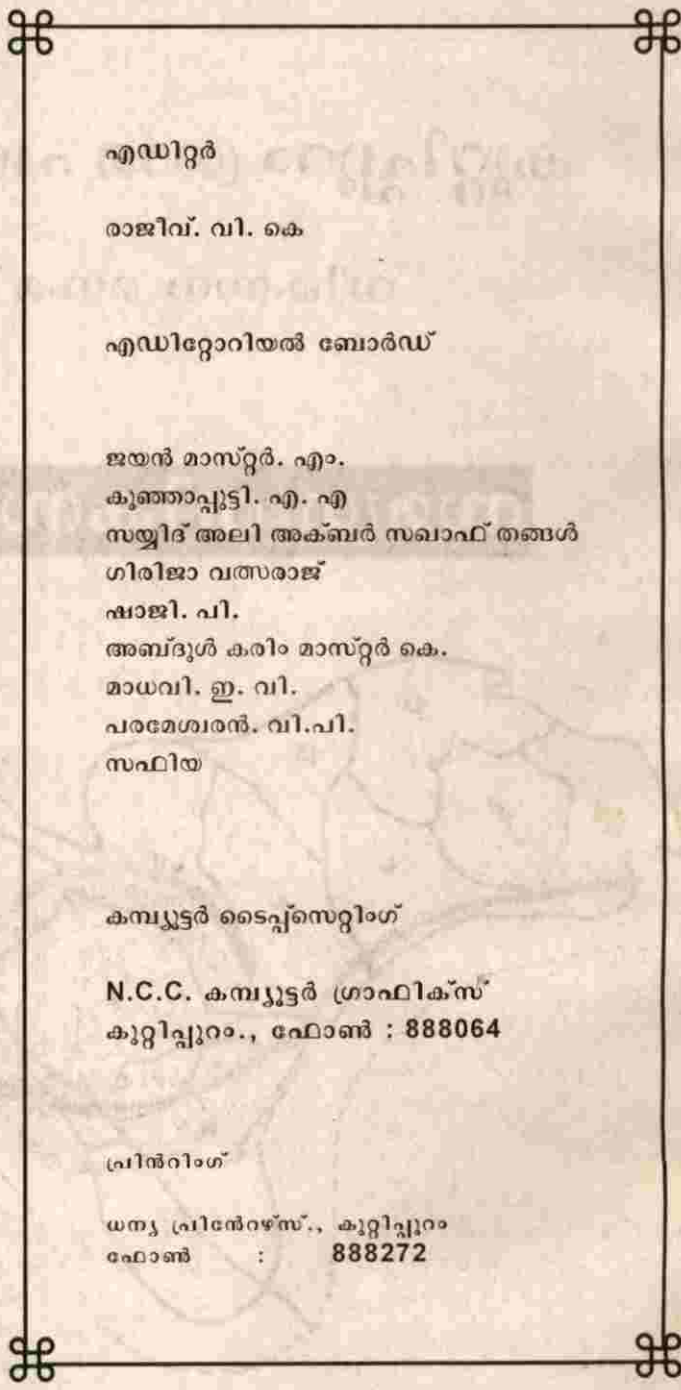 എഡിറ്റർ
രാജീവ്. വി. കെ
എഡിറ്റോറിയൽ ബോർഡ്
ജയൻ മാസ്റ്റർ. എം.
കുഞ്ഞാപ്പുട്ടി. എ. എ
സയ്യിദ് അലി അക്ബർ സഖാഫ് തങ്ങൾ
ഗിരിജാ വത്സരാജ്
ഷാജി. പി.
അബ്ദുൾ കരിം മാസ്റ്റർ കെ.
മാധവി. ഇ. വി.
പരമേശ്വരൻ. വി.പി.
സഫിയ
കമ്പ്യൂട്ടർ ടൈപ്പ്സെറ്റിംഗ്
N.C.C. കമ്പ്യൂട്ടർ ഗ്രാഫിക്സ്
കുറ്റിപ്പുറം., ഫോൺ : 888064
പ്രിൻറിംഗ്
ധന്യ പ്രിൻേറഴ്സ്., കുറ്റിപ്പുറം
ഫോൺ : 888272